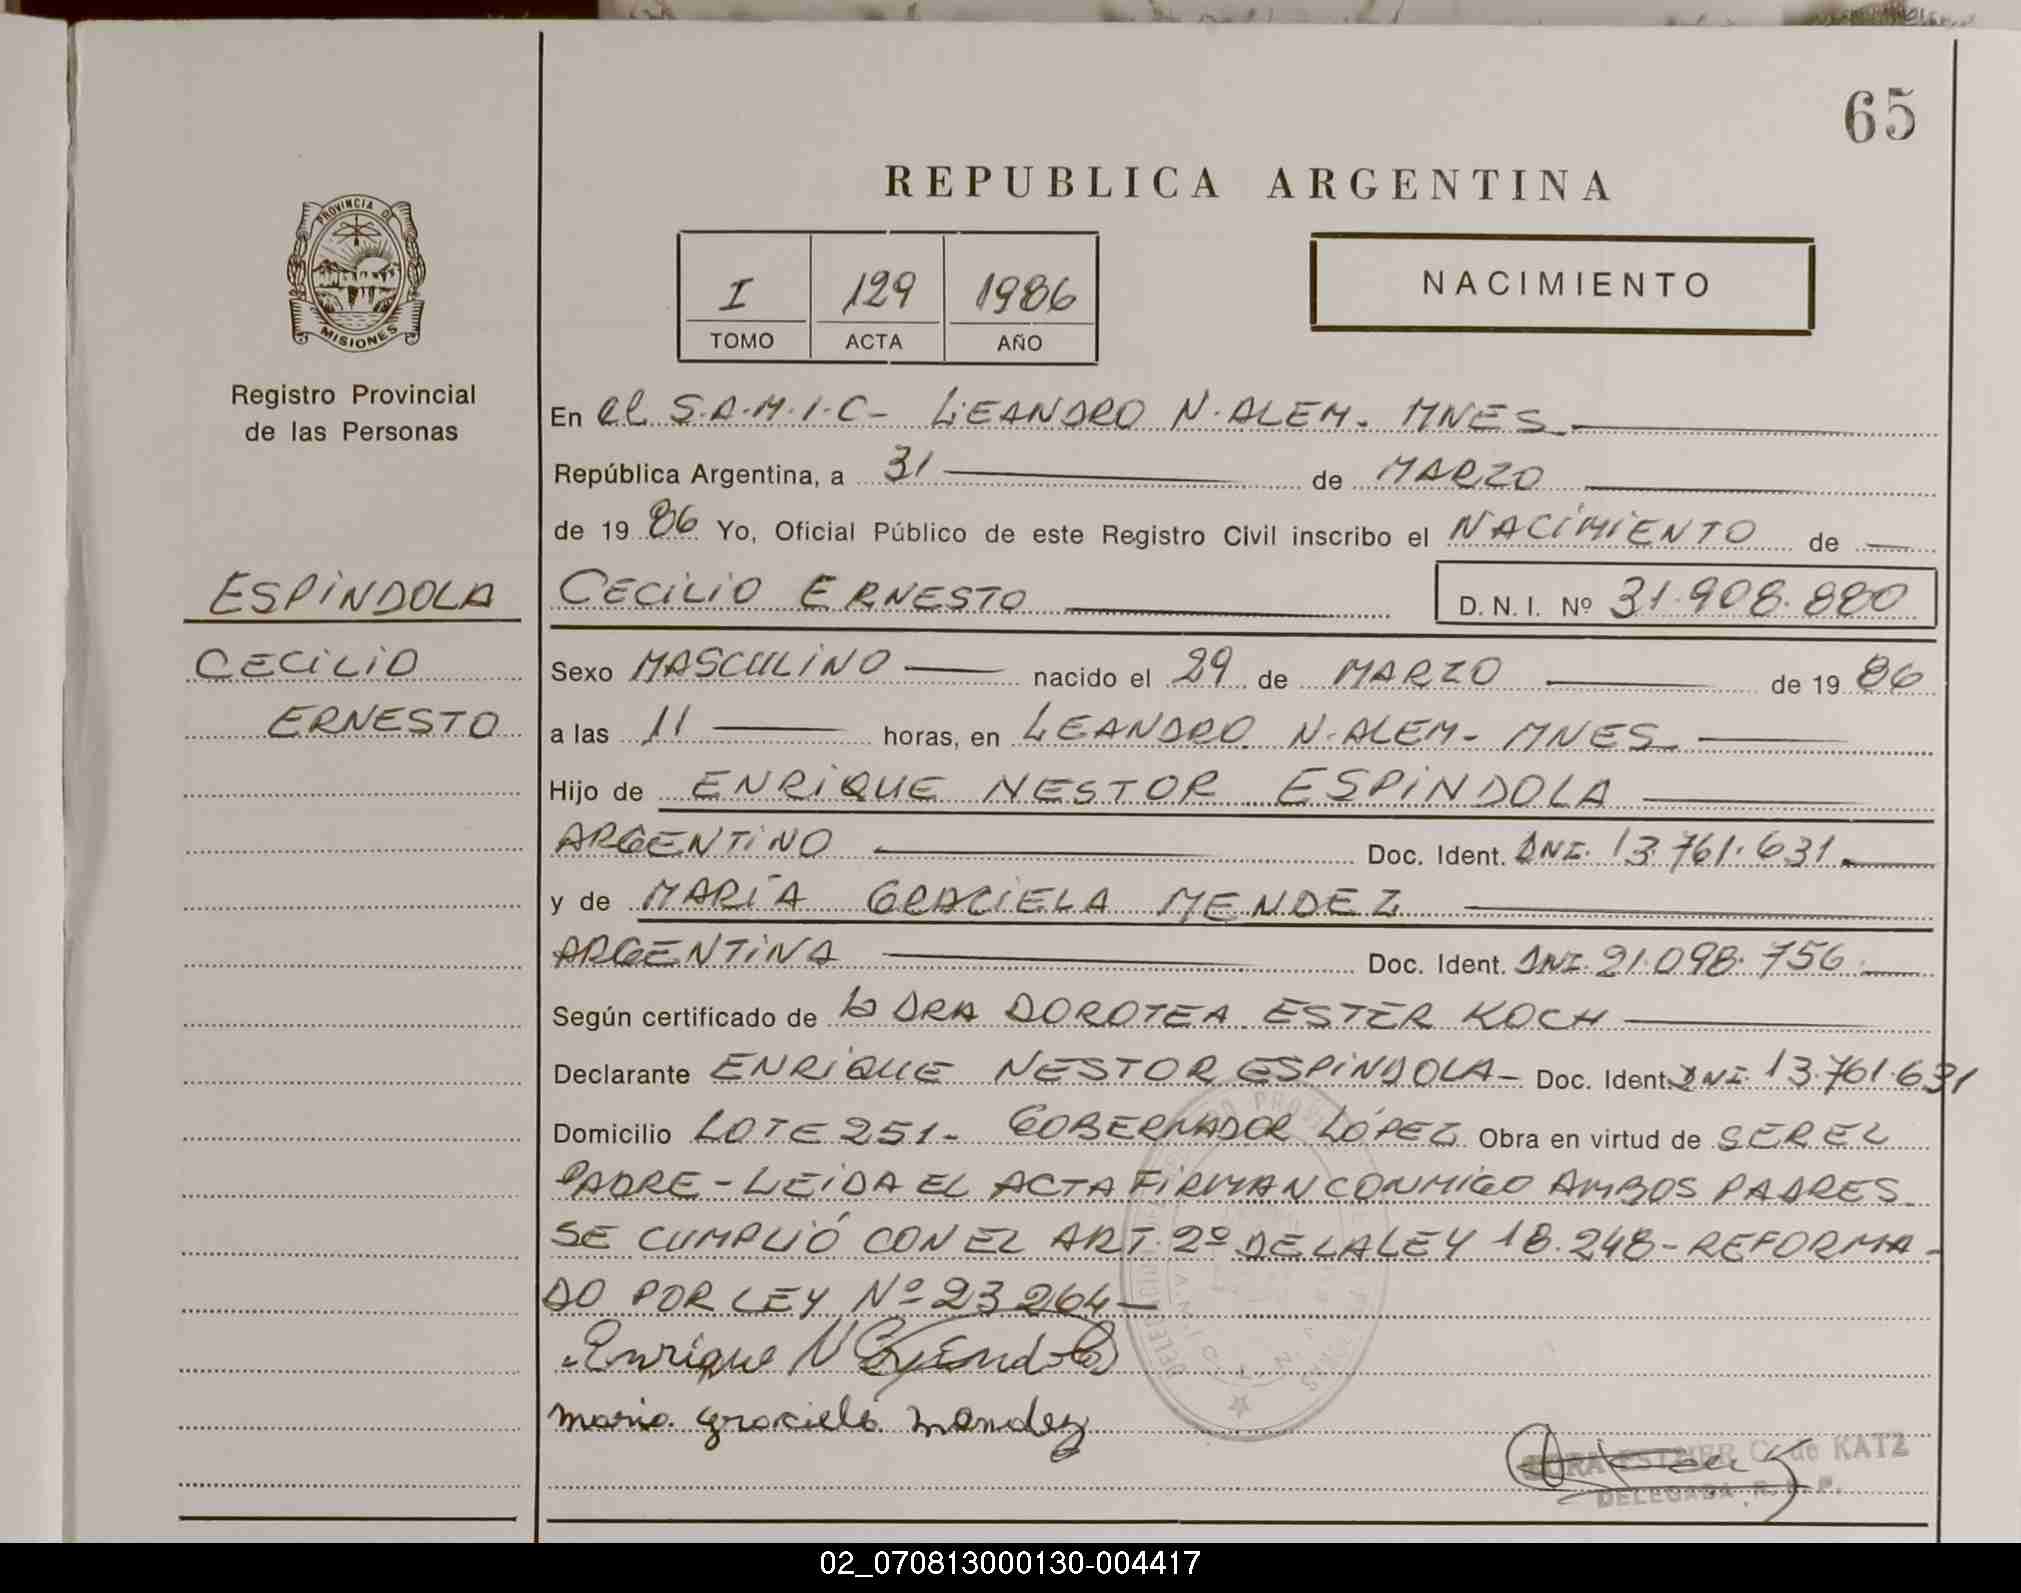 65
REPUBLICA ARGENTINA
PROVINCIA DE
MISIONES
I 129 1986
TOMO ACTA AÑO
NACIMIENTO
Registro Provincial
de las Personas
En el S.A.M.I.C- LEANDRO N. ALEM. MNES
República Argentina, a 31 de MARZO
de 19 86 Yo, Oficial Público de este Registro Civil inscribo el NACIMIENTO de
ESPINDOLA CECILIO ERNESTO D. N. I. Nº 31.908.880
CECILIO
ERNESTO
Sexo MASCULINO nacido el 29 de MARZO de 19 86
a las 11 horas, en LEANDRO N. ALEM- MNES
Hijo de ENRIQUE NESTOR ESPINDOLA
ARGENTINO Doc. Ident. DNI. 13.761.631
y de MARÍA GRACIELA MENDEZ
ARGENTINA Doc. Ident. DNI. 21.098.756
Según certificado de la DRA DOROTEA ESTER KOCH
Declarante ENRIQUE NESTOR ESPINDOLA- Doc. Ident. DNI. 13.761.631
Domicilio LOTE 251- GOBERNADOR LÓPEZ Obra en virtud de SER EL
PADRE - LEIDA EL ACTA FIRMAN CONMIGO AMBOS PADRES
SE CUMPLIÓ CON EL ART. 2º DE LA LEY 18.248 - REFORMA-
DO POR LEY Nº 23264-
Enrique N Espindola
Maria Graciela Mendez
ESTHER C. de KATZ
DELEGADA R. P.
02_070813000130-004417